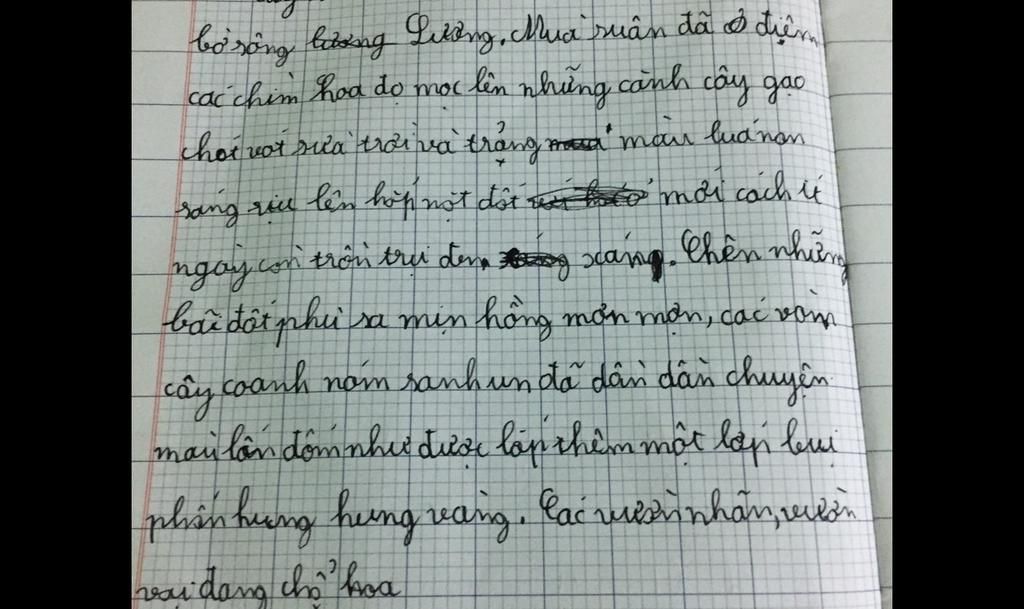 bờ sông Lương. Mùa xuân đã điệm
các chìm hoa đọ mọc lên những cành cây gạo
chót vót giữa trời và trảng màu luá non
sáng rịu lên hốp nột đốt mới cách ít
ngày còn trôn trụi đen xáng. Chên những
bãi đốt phù sa mịn hồng mơn mọn, các vòm
cây coanh nám ranh un đã dần dần chuyện
maù lấn đốm như được lắp thêm một lớp bụi
phấn hung hung vàng. Các vườn nhãn, vườn
vải đang chổ hoa